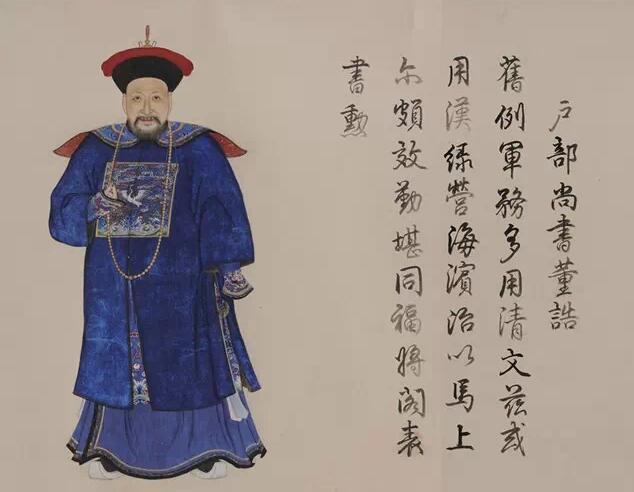 戶部尚書董誥
舊例軍務多用清文茲或
用漢綠營海濱治以馬上
亦頗效勤堪同福將閣表
書勳